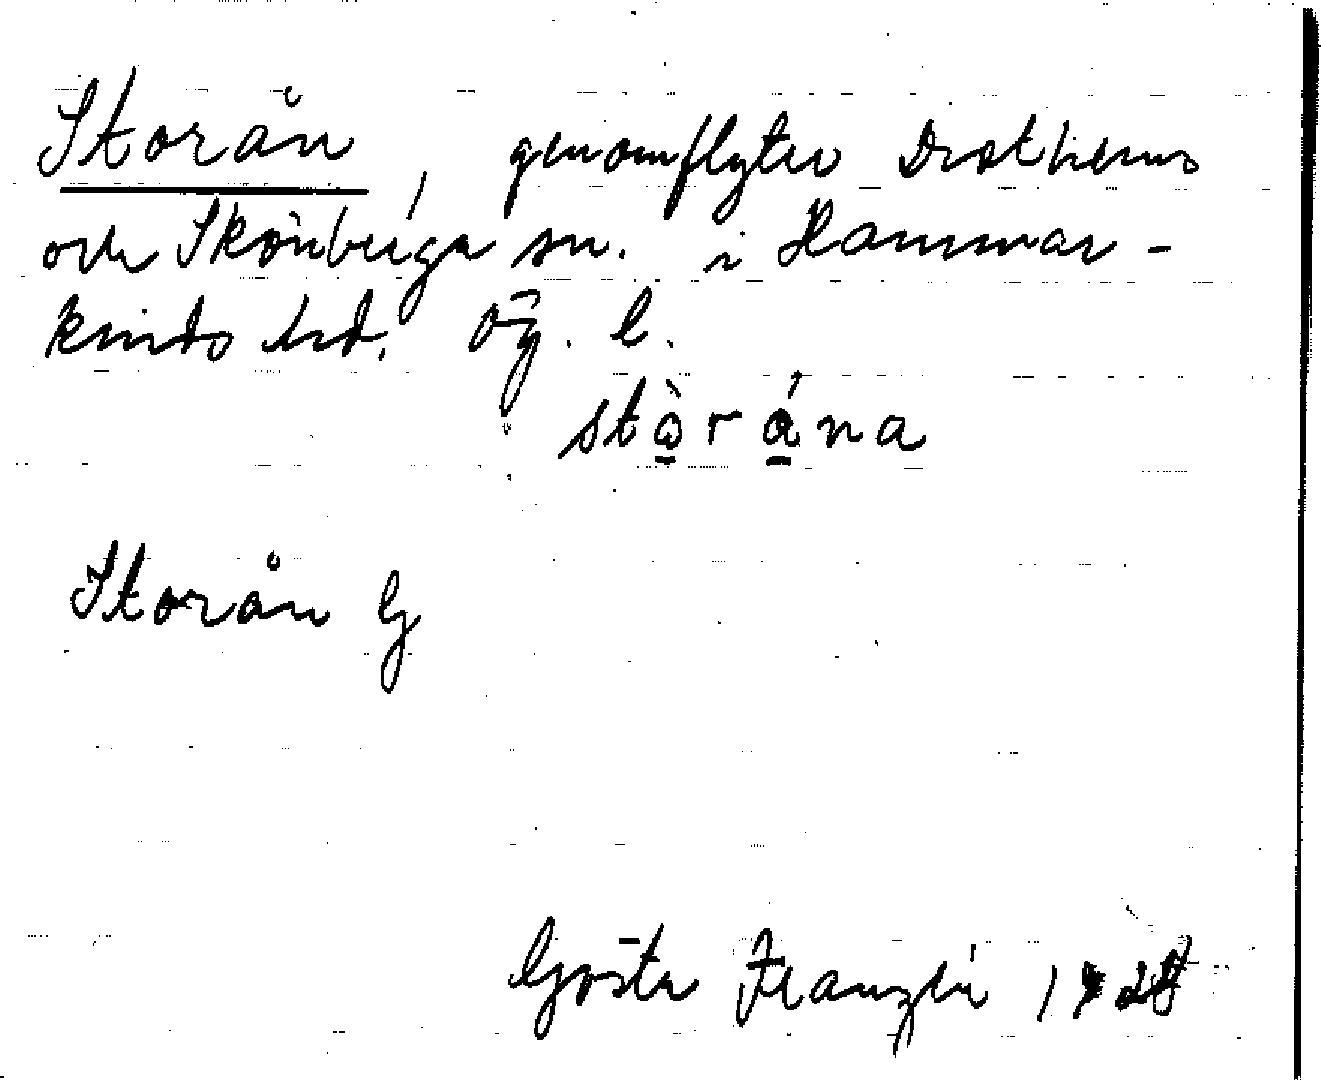 Storån, genomflyter Drothems
och Skönberga sn. i Hammar-
kinds hd. Ög. l.
stò̱rá̱na
Storån G
Gösta Franzén